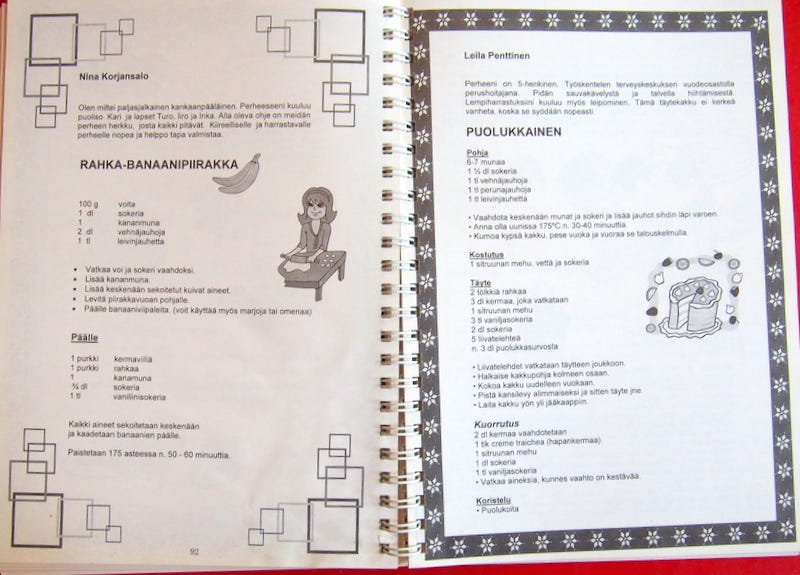 Nina Korjansalo
Olen miltei paljasjalkainen kankaanpääläinen. Perheeseeni kuuluu
puoliso Kari ja lapset Turo, Iiro ja Inka. Alla oleva ohje on meidän
perheen herkku, josta kaikki pitävät. Kiireelliselle ja harrastavalle
perheelle nopea ja helppo tapa valmistaa.
RAHKA-BANAANIPIIRAKKA
100 g voita
1 dl sokeria
1 kananmuna
2 dl vehnäjauhoja
1 tl leivinjauhetta
• Vatkaa voi ja sokeri vaahdoksi.
• Lisää kananmuna.
• Lisää keskenään sekoitetut kuivat aineet.
• Levitä piirakkavuoan pohjalle.
• Päälle banaaniviipaleita. (voit käyttää myös marjoja tai omenaa)
Päälle
1 purkki kermaviiliä
1 purkki rahkaa
1 kanamuna
¾ dl sokeria
1 tl vaniliinisokeria
Kaikki aineet sekoitetaan keskenään
ja kaadetaan banaanien päälle.
Paistetaan 175 asteessa n. 50 - 60 minuuttia.
92
Leila Penttinen
Perheeni on 5-henkinen. Työskentelen terveyskeskuksen vuodeosastolla
perushoitajana. Pidän sauvakävelystä ja talvella hiihtämisestä.
Lempiharrastuksiini kuuluu myös leipominen. Tämä täytekakku ei kerkeä
vanheta, koska se syödään nopeasti.
PUOLUKKAINEN
Pohja
6-7 munaa
1 ½ dl sokeria
1 tl vehnäjauhoja
1 tl perunajauhoja
1 tl leivinjauhetta
• Vaahdota keskenään munat ja sokeri ja lisää jauhot sihdin läpi varoen.
• Anna olla uunissa 175ºC n. 30-40 minuuttia.
• Kumoa kypsä kakku, pese vuoka ja vuoraa se talouskelmulla.
Kostutus
1 sitruunan mehu, vettä ja sokeria
Täyte
2 tölkkiä rahkaa
3 dl kermaa, joka vatkataan
1 sitruunan mehu
3 tl vaniljasokeria
2 dl sokeria
5 liivatelehteä
n. 3 dl puolukkasurvosta
• Liivatelehdet vatkataan täytteen joukkoon.
• Halkaise kakkupohja kolmeen osaan.
• Kokoa kakku uudelleen vuokaan.
• Pistä kansilevy alimmaiseksi ja sitten täyte jne.
• Laita kakku yön yli jääkaappiin.
Kuorrutus
2 dl kermaa vaahdotetaan
1 tlk creme traichea (hapankermaa)
1 sitruunan mehu
1 dl sokeria
1 tl vaniljasokeria
• Vatkaa aineksia, kunnes vaahto on kestävää.
Koristelu
• Puolukoita